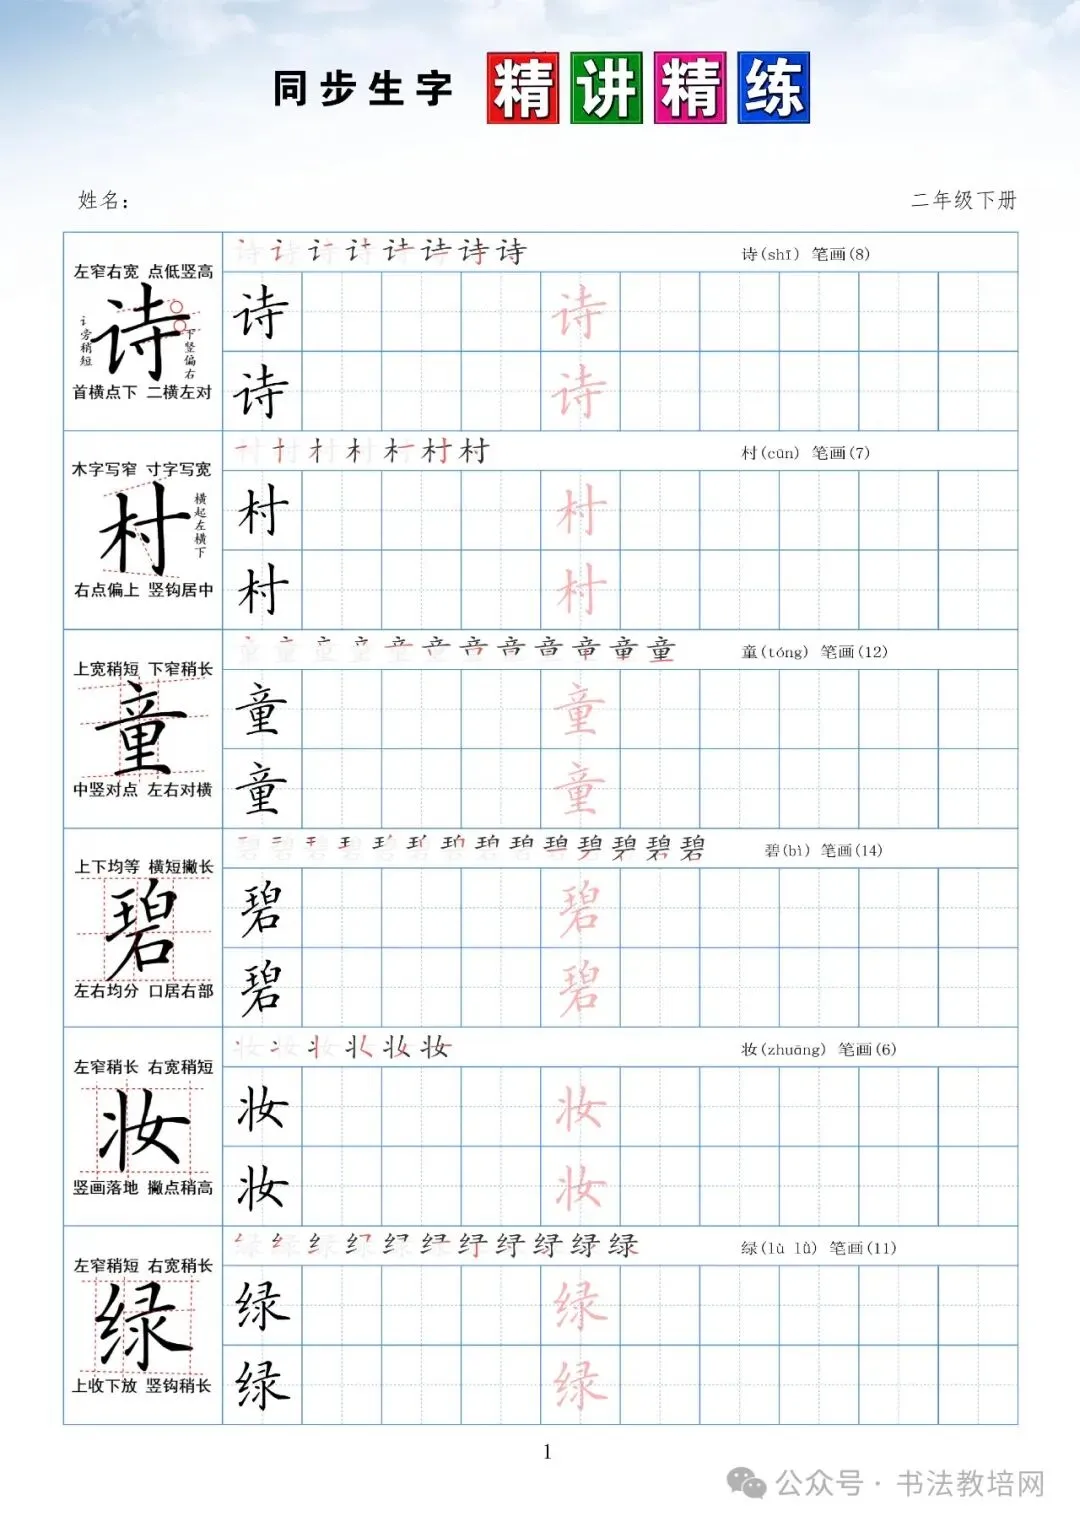 同步生字 精讲精练
姓名：
二年级下册
左窄右宽 点低竖高
诗
讠旁稍短
下竖偏右
首横点下 二横左对
诗(shī) 笔画(8)
诗 诗
诗 诗
木字写窄 寸字写宽
村
横起左横下
右点偏上 竖钩居中
村(cūn) 笔画(7)
村 村
村 村
上宽稍短 下窄稍长
童
中竖对点 左右对横
童(tóng) 笔画(12)
童 童
童 童
上下均等 横短撇长
碧
左右均分 口居右部
碧(bì) 笔画(14)
碧 碧
碧 碧
左窄稍长 右宽稍短
妆
竖画落地 撇点稍高
妆(zhuāng) 笔画(6)
妆 妆
妆 妆
左窄稍短 右宽稍长
绿
上收下放 竖钩稍长
绿(lù lǜ) 笔画(11)
绿 绿
绿 绿
1
公众号 · 书法教培网